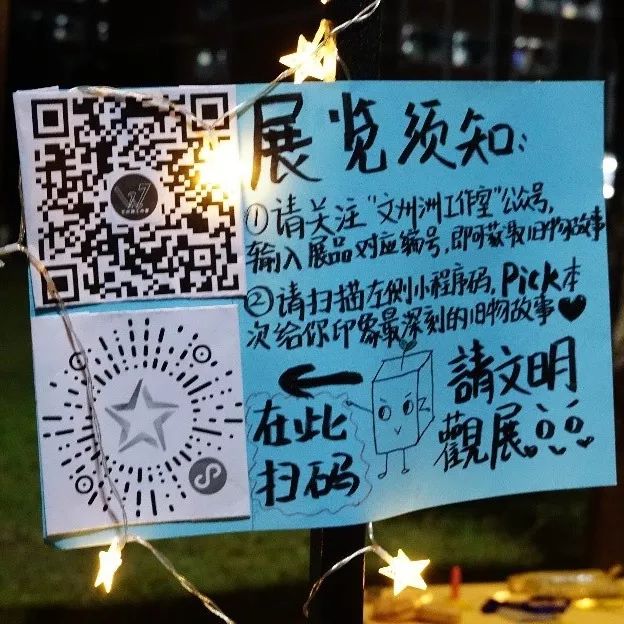 展览须知:
①请关注"文州洲工作室"公众号,
输入展品对应编号,即可获取旧物故事
②请扫描左侧小程序码,Pick本
次给你印象最深刻的旧物故事
在此
扫码
請文明
觀展